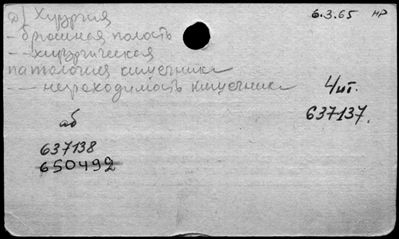 д) Хирургия
6.3.65 НР
- брюшная полость
-- хирургическая
патология кишечника
--- непроходимость кишечника
4 шт.
637137.
аб
637138
650492